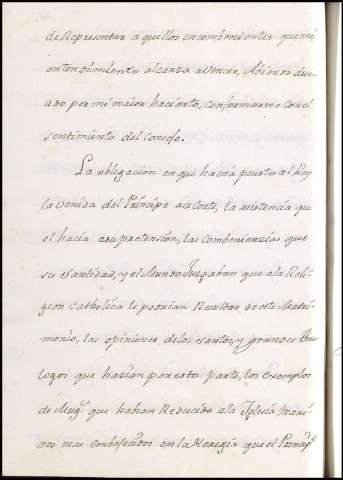 de Representar aquellos incombenientes que mi
entendimiento alcanza a vencer,
do por mi maior hacierto, conformarme con el
sentimiento del Consejo.
La obligacion en que havia puesto al Rey
la venida del Principe a su Corte, la asistencia que
el hacia a su pretension, las combenienzias que
su Santidad, y el Mundo Juzgaban que a la Reli-
gion Catholica le podrian Resultar de este Matri-
monio, las opiniones de los Santos, y grandes Theo-
logos que hazian por esta parte, los exemplos
de Mug.s que habian Reducido a la Iglesia Mari-
dos mas en la Heregia que el Principe